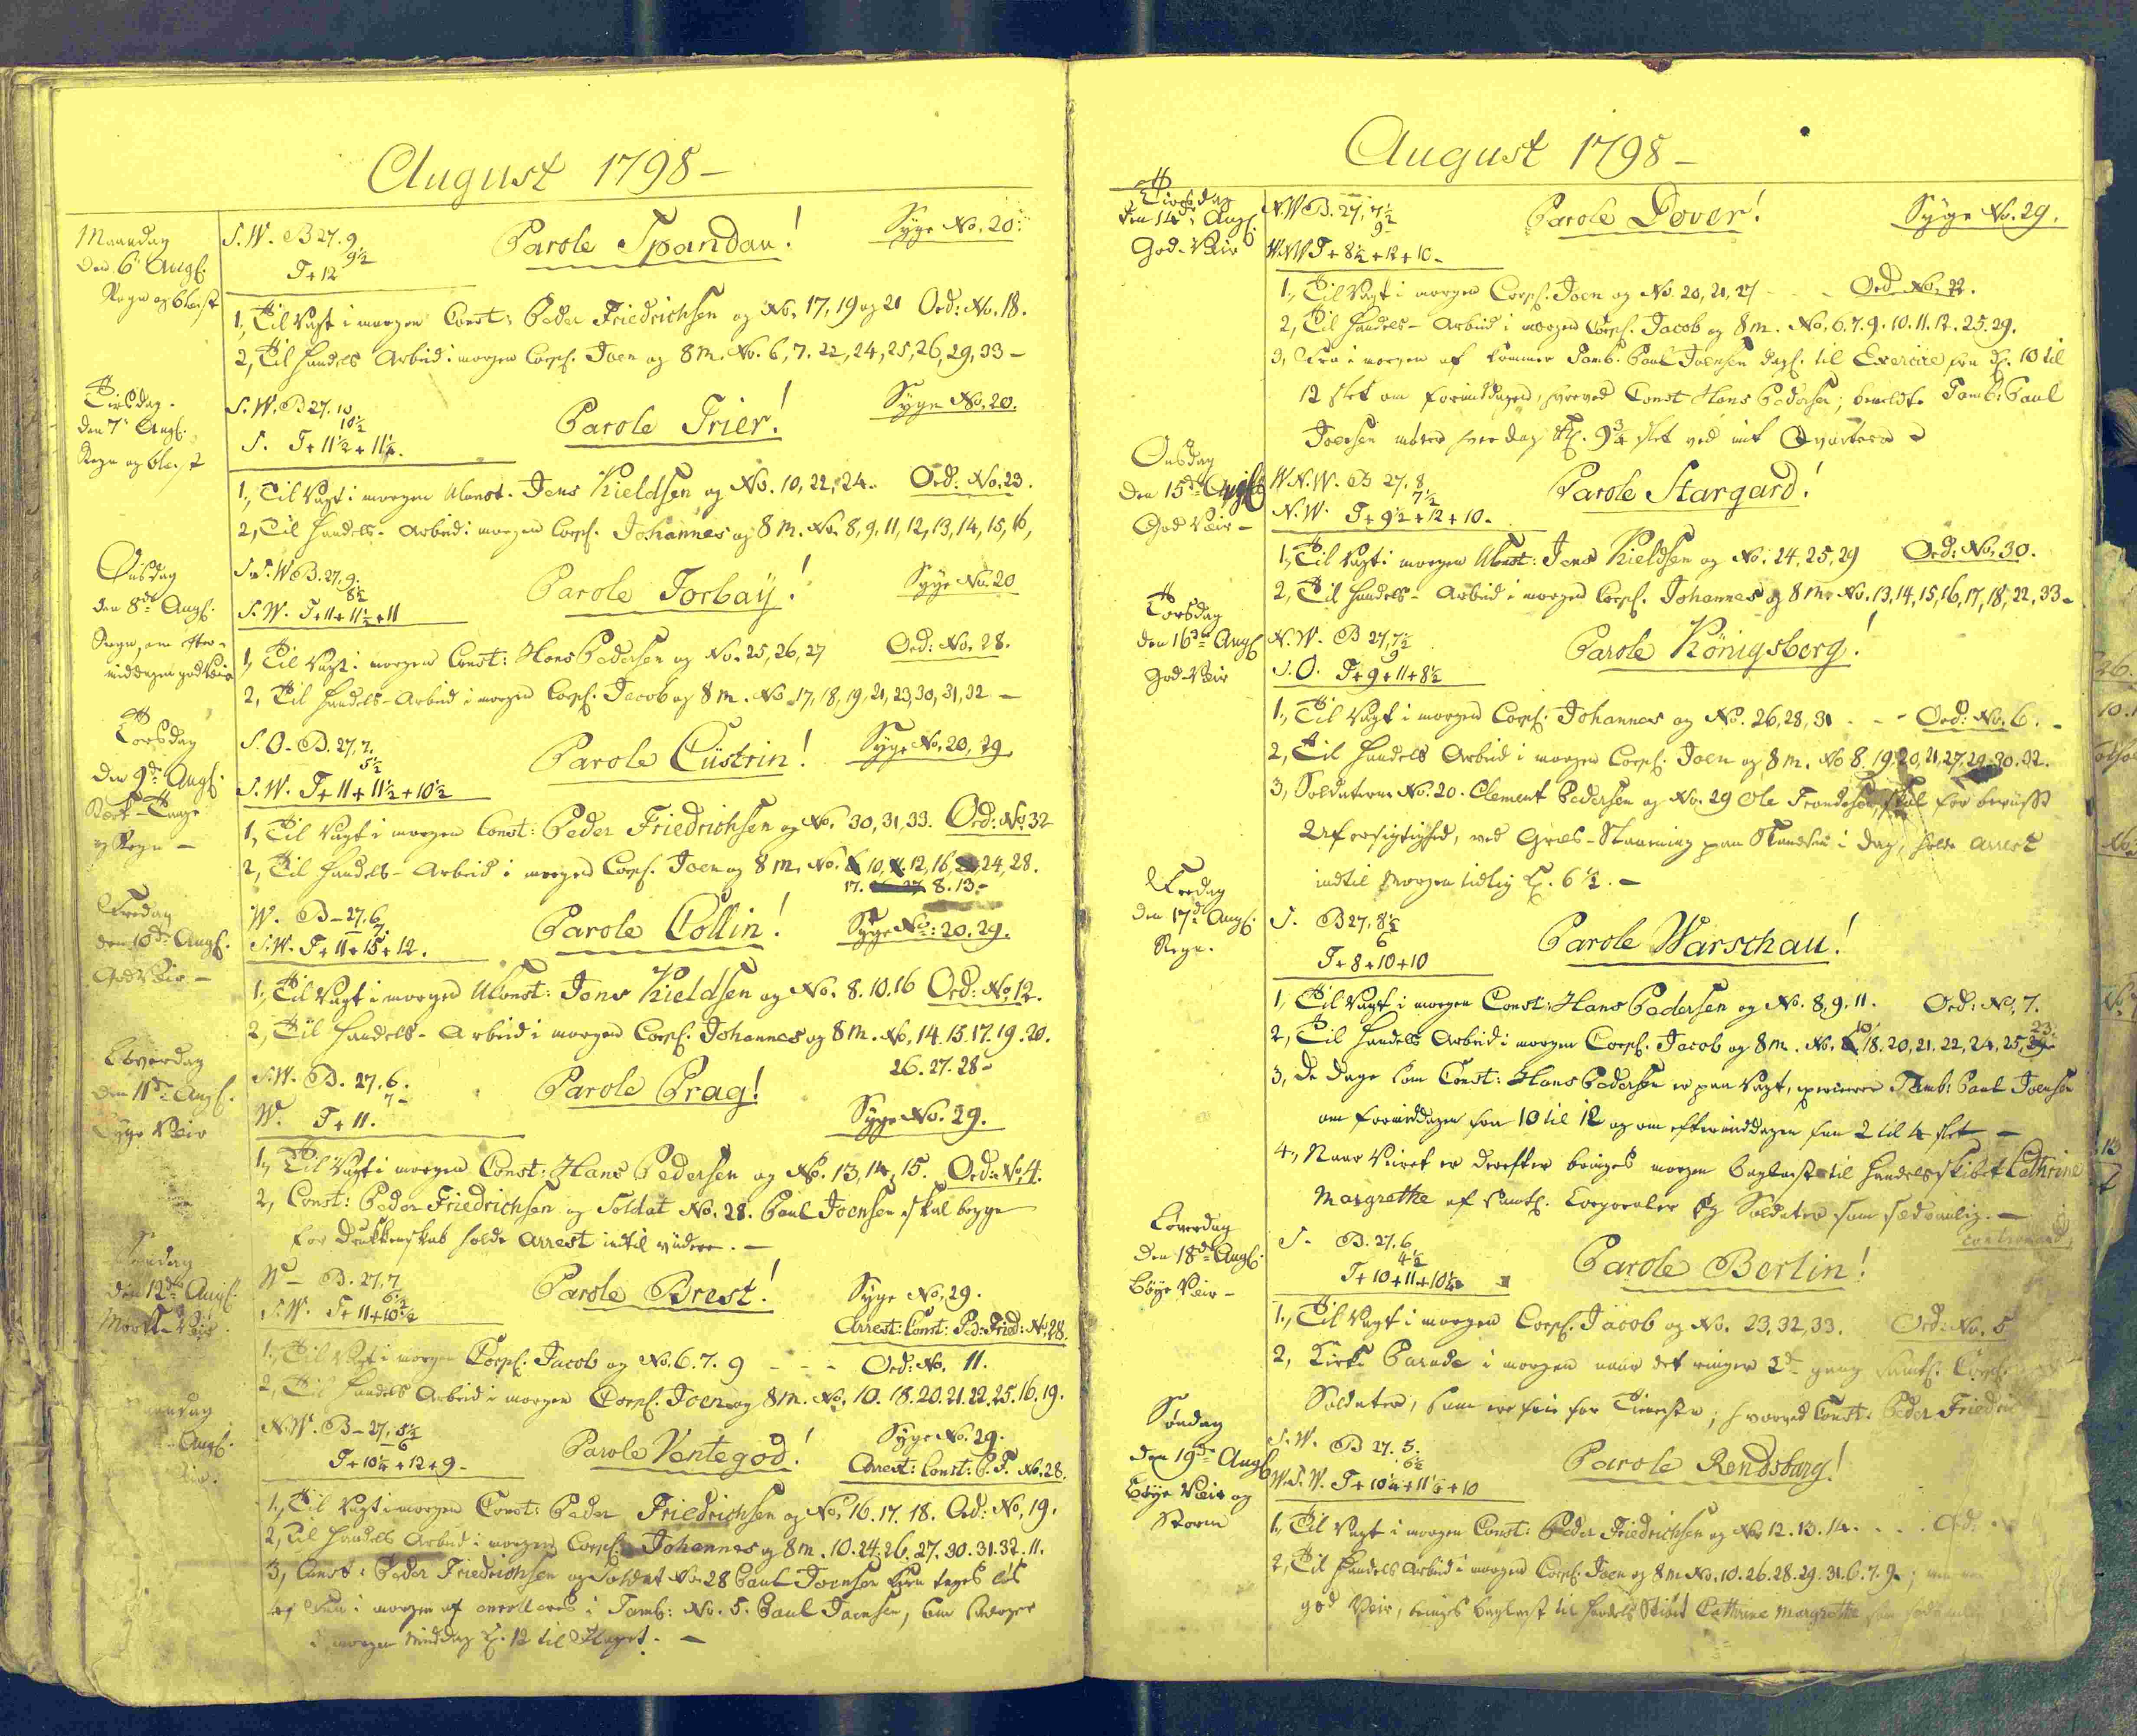 August 1798 –
Maandag
den 6' Augl.
Regn og blæst
S.W. B 27. 9
9½
T + 12
Parole Spandau!
Syge No. 20.
1, Til Vagt i morgen Const: Peder Friedrichsen og No. 17, 19 og 21 Ord: No. 18.
2, Til Handels Arbeid i morgen Corpl. Joen og 8 m. No. 6, 7. 22, 24, 25, 26, 29, 33 –
Tirsdag.
den 7' Augl.
Regn og blæst
S.W. B 27. 10
10½
S. T + 11½ + 11½.
Parole Trier!
Syge No. 20.
1, Til Vagt i morgen Uconst. Jens Kieldsen og No. 10, 22, 24. Ord: No. 23.
2, Til Handels- Arbeid i morgen Corpl. Johannes og 8 m. No. 8, 9, 11, 12, 13, 14, 15, 16,
Onsdag
den 8de Augl.
Regn, om efter-
middagen god Veir
S.S.W B. 27. 9.
8½
S.W. T + 11 + 11½ + 11
Parole Torbaÿ!
Syge No. 20
1, Til Vagt i morgen Const: Hans Pedersen og No. 25, 26, 27 Ord: No. 28.
2, Til Handels-Arbeid i morgen Corpl. Jacob og 8 m. No. 17, 18, 19, 21, 23, 30, 31, 32 –
Torsdag
den 9de Augl.
Mørk-Taage
og Regn –
S.O. B. 27, 7.
5½
S.W. T + 11 + 11½ + 10½
Parole Cüstrin!
Syge No. 20, 29
1, Til Vagt i morgen Const: Peder Friedrichsen og No. 30, 31, 33. Ord: No. 32
2, Til Handels- Arbeid i morgen Corpl. Joen og 8 m. No. 10, 12, 16, 24, 28.
17. 8. 13.-
Fredag
den 10de Augl.
God Veir –
W. B – 27. 6
7.
S.W. T + 11 + 15 + 12.
Parole Collin!
Syge No: 20. 29.
1, Til Vagt i morgen Uconst: Jens Kieldsen og No. 8. 10. 16 Ord: No. 12.
2, Til Handels- Arbeid i morgen Corpl. Johannes og 8 m. No. 14. 15. 17. 19. 20.
26. 27. 28 –
Löverdag
den 11de Augl.
Byge Veir
S.W. B. 27. 6.
7 –
W. T + 11.
Parole Prag!
Syge No. 29.
1, Til Vagt i morgen Const: Hans Pedersen og No. 13, 14, 15. Ord: No. 4.
2, Const: Peder Friedrichsen og Soldat No. 28. Paul Joensen skal begge
for Drukkenskab holde Arrest indtil videre. –
den 12de Augl.
Mørk-Veir
W – B. 27, 7
6½
S.W. T + 11 + 10½
Parole Brest!
Syge No. 29.
Arrest: Const: Ped: Fried: No. 28.
1, Til Vagt i morgen Corpl. Jacob og No. 6. 7. 9 - - - Ord: No. 11.
2, Til Handels Arbeid i morgen Corpl. Joen og 8 m. No. 10. 18. 20. 21. 22. 25. 16. 19.
Augl.
N.W. B – 27, 5½
6
T + 10¼ + 12 + 9 –
Parole Ventegod!
Syge No. 29.
Arrest: Const: P. F. No. 28.
1, Til Vagt i morgen Const: Peder Friedrichsen og No. 16. 17. 18. Ord: No. 19.
2, Til Handels Arbeid i morgen Corpl. Johannes og 8 m. 10. 24. 26. 27. 30. 31. 32. 11.
3, Const: Peder Friedrichsen og Soldat No. 28 Paul Joensen kan tages lös
Fra i morgen af enrolleres i Tamb: No. 5. Paul Joensen, som
i morgen Middag Kl. 12 til Flaget. –
August 1798 –
Tirsdag
den 14de Augl.
God-Veir
N.W B. 27, 7½
9
W.N.W T + 8½ + 12 + 10 –
Parole Dover!
Syge No. 29.
1, Til Vagt i morgen Corpl. Joen og No. 20, 21, 27 - - - Ord No. 22.
2, Til Handels- Arbeid i morgen Corpl. Jacob og 8 m. No. 6. 7. 9. 10. 11. 12. 25. 29.
3, Fra i morgen af kommer Tamb. Paul Joensen dagl. til Exercice fra Kl. 10 til
12 slet om Formiddagen, hvorved Const Hans Pedersen; bemeldte Tamb: Paul
Joensen møder hver dag Kl. 9¾ slet ved mit Qvarteer
Onsdag
den 15de Augl.
God Veir –
W.N.W. B 27. 8
7½
N.W. T + 9½ + 12 + 10 –
Parole Stargard!
1, Til Vagt i morgen Uconst: Jens Kieldsen og No. 24, 25, 29 Ord: No. 30.
2, Til Handels- Arbeid i morgen Corpl. Johannes og 8 m. No. 13, 14, 15, 16, 17, 18, 22, 33 –
Torsdag
den 16de Augl
God-Veir
N.W. B 27, 7½
9
S.O. T + 9 + 11 + 8½
Parole Königsberg!
1, Til Vagt i morgen Corpl: Johannes og No. 26, 28, 31 - - - Ord: No. 6. –
2, Til Handels Arbeid i morgen Corpl. Joen og 8 m. No 8. 19. 20, 21, 27, 29. 30. 32.
3, Soldaterne No. 20. Clement Pedersen og No. 29 Ole Trondesen, skal for beviist
Uforsigtighed, ved Græs-Skaarning paa Skandsen i Dag, holde Arrest
indtil Morgen tidlig Kl. 6½. –
Fredag
den 17de Augl.
Regn.
S. B 27, 8½
6
T + 8 + 10 + 10
Parole Warschau!
1, Til Vagt i morgen Const: Hans Pedersen og No. 8, 9, 11. Ord: No. 7.
2, Til Handels Arbeid i morgen Corpl. Jacob og 8 m. No. 10, 18. 20, 21. 22, 24, 25, 23.
3, De Dage som Const: Hans Pedersen er paa Vagt, exercerer Tamb: Paul Joensen
om Formiddagen fra 10 til 12 og om eftermiddagen fra 2 til 4 slet –
4, Naar Veiret er derefter bringes morgen Baglast til Handelsskibet Cathrine
Margrethe af samtl. Corporaler og Soldater som sædvanlig. –
Contramand.
Löverdag
den 18de Augl.
Böye Veir –
S – B. 27, 6
4½
T + 10 + 11 + 10½
Parole Berlin!
1, Til Vagt i morgen Corpl. Jacob og No. 23, 32, 33. Ord: No. 5
2, Kirke Parade i morgen naar det ringer 2de gang samtl. Corpl.
Soldater, som ere frie for Tieneste; hvorved Const: Peder Friedri
Søndag
den 19de Augl
Böye Veir og
Storm
S.W. B 27. 5.
6½
W.S.W. T + 10¼ + 11½ + 10
Parole Rendsburg!
1, Til Vagt i morgen Const: Peder Friedrichsen og No 12. 13. 14. . . . Ord:
2, Til Handels Arbeid i morgen Corpl. Joen og 8 m No. 10. 26. 28. 29. 31. 6. 7. 9;
god Veir, bringes Baglast til Handels Skibet Cathrine Margrethe som sædvanlig